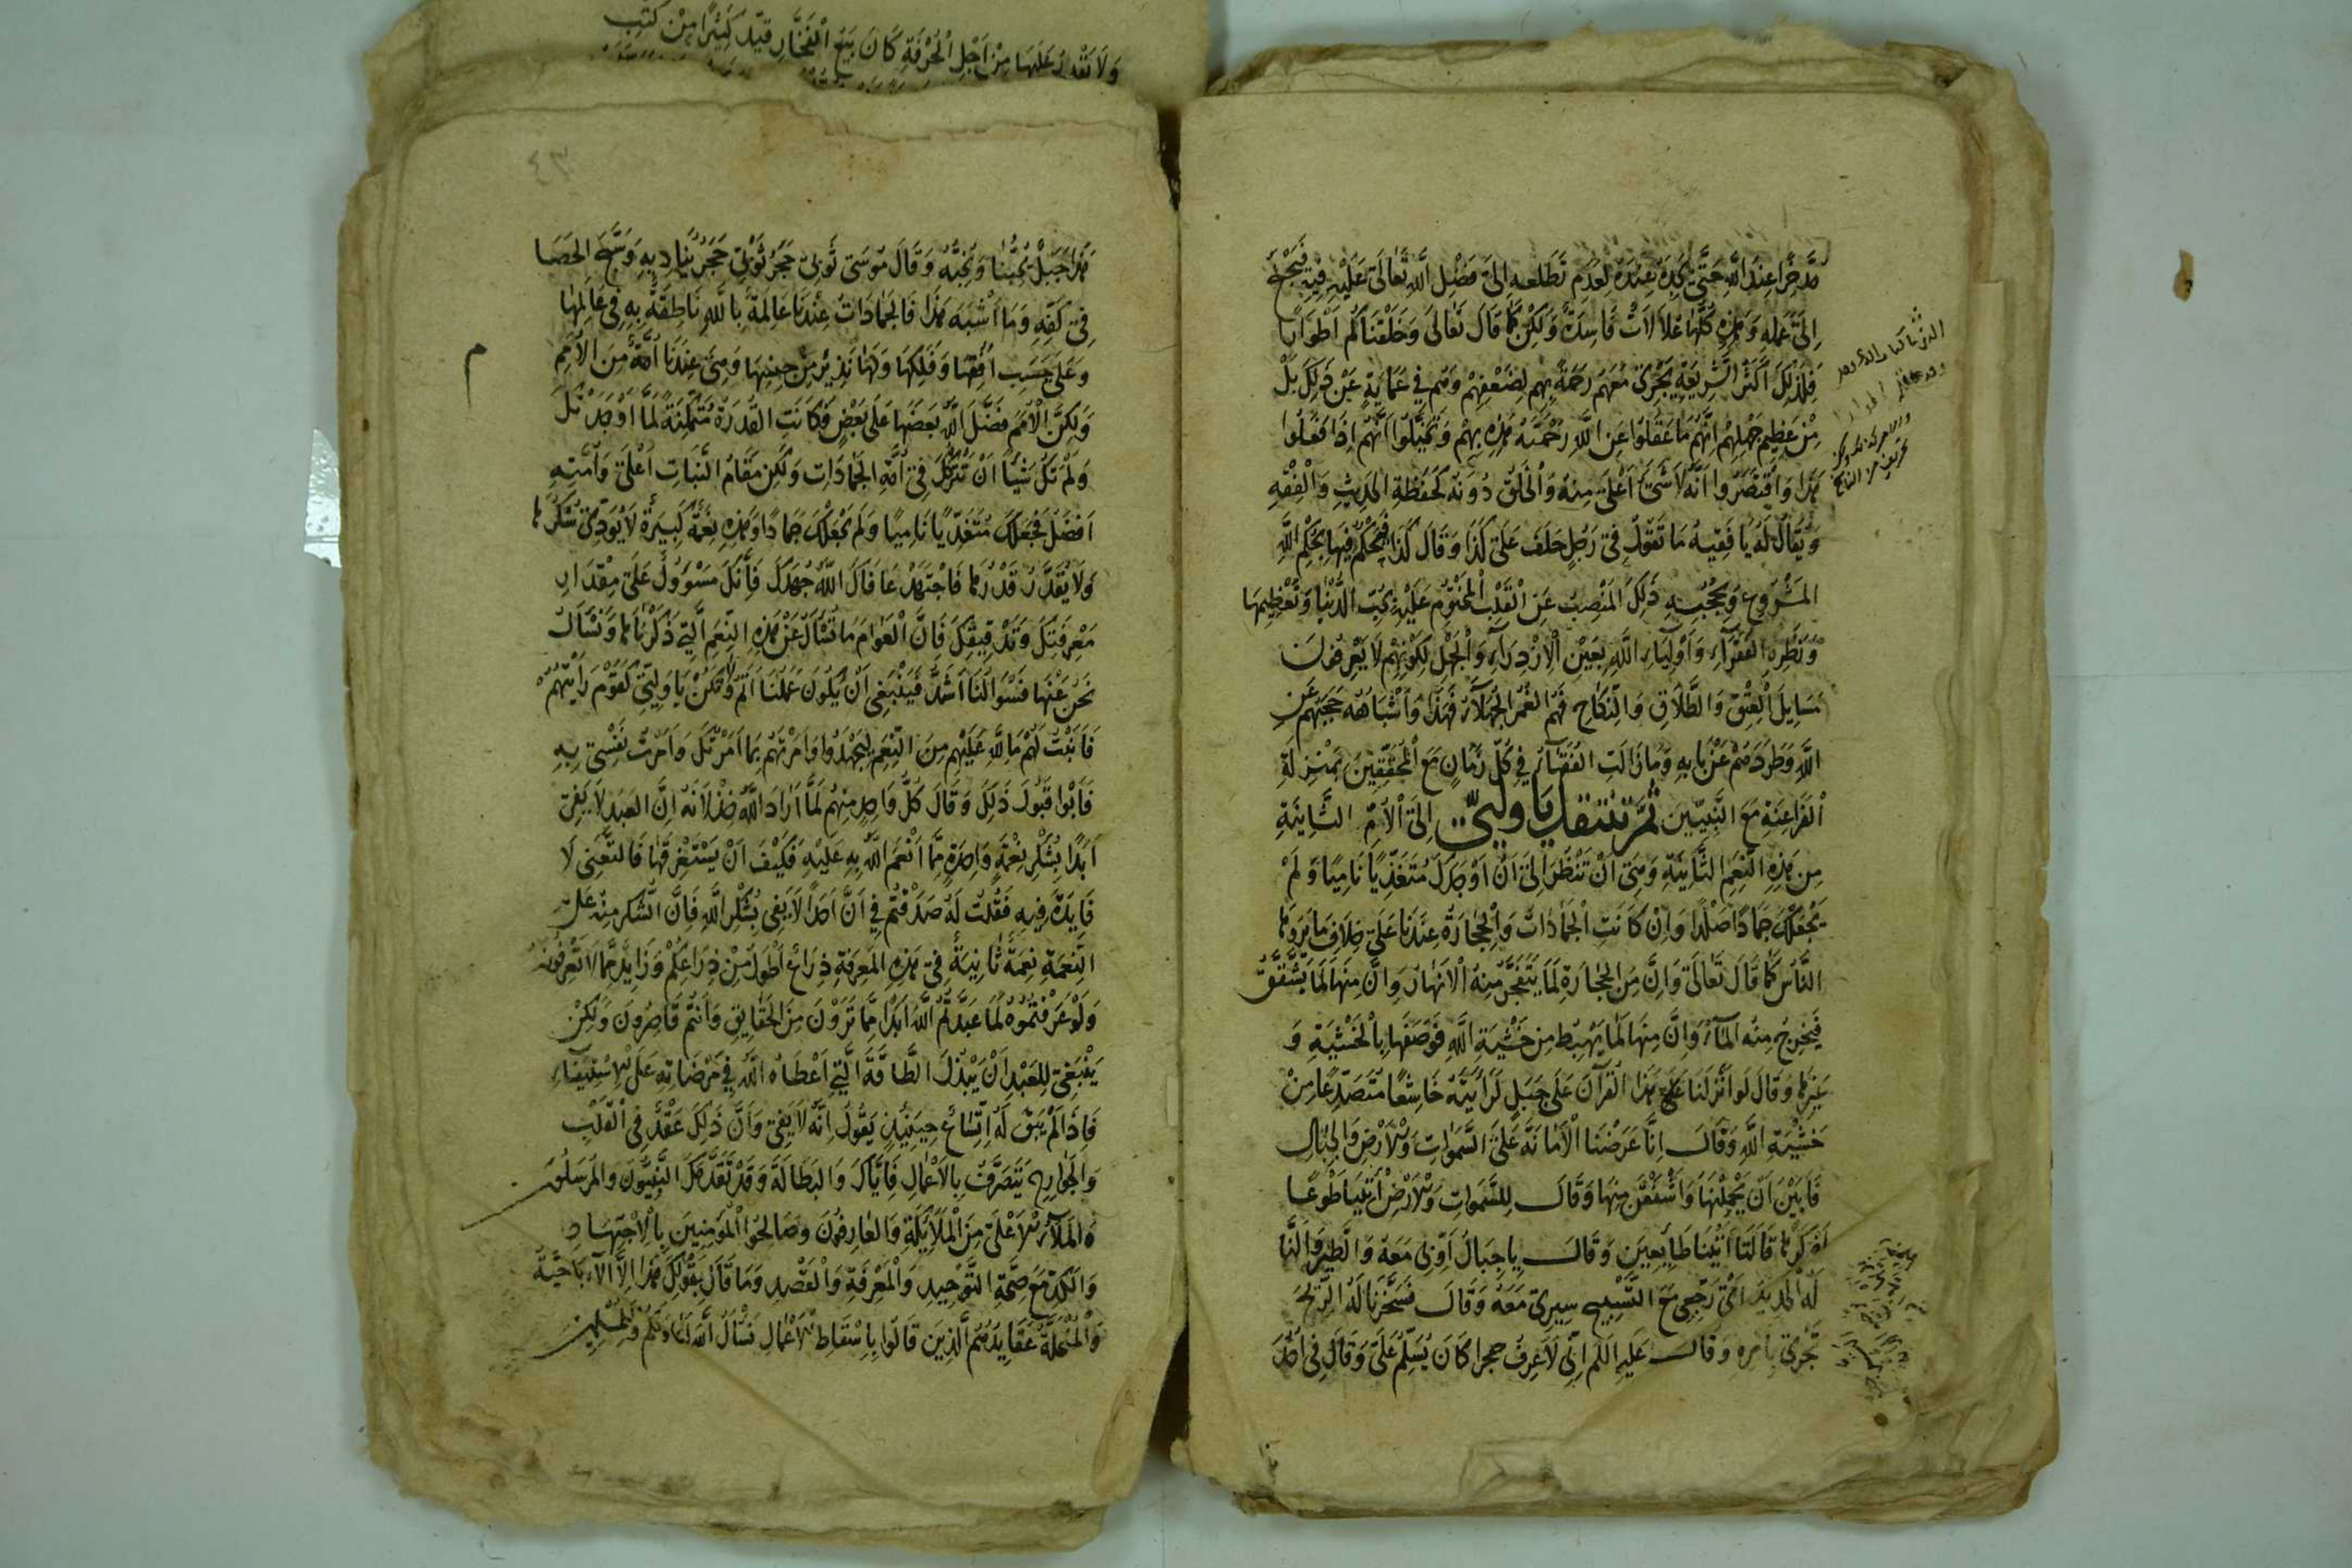 مدخرا عند الله حتى يجده عنده لعدم تطلعه إلى فضل الله تعالى عليه فيه فيحج
إلى عمله وهذه كلها علالات فاسدة ولكن كما قال تعالى وخلقناكم أطوارا
فلذلك أكثر الشريعة يجري معهم رحمة بهم لضعفهم وهم في عماية عن ذلك بل
من عظيم جهلهم انهم ما عقلوا عن الله رحمته هذه بهم وتخيلوا أنهم إذا فعلوا
هذا واقتصروا أنه لا شيء أعلى منه والخلق دونه كحفظة الحديث والفقه
ويقال له يا فقيه ما تقول في رجل حلف على كذا وقال كذا فيحكم فيها بحكم الله
المشروع ويحجبه ذلك المنصب عن القلب المختوم عليه بحب الدنيا وتعظيمها
ونظره الفقراء وأولياء الله بعين الازدراء والجهل لكونهم لا يعرفون
مسايل العتق والطلاق والنكاح فهم الغمر الجهلاء فهذا وأشباهه حجبهم عن
الله وطردهم عن بابه وما زالت الفقهاء في كل زمان مع المحققين بمنزلة
الفراعنة مع النبيين ثم تنتقل يا وليي إلى الأم الثانية
من هذه النعم الثانية وهي أن تنظر إلى أن أوجدك متغذيا ناميا ولم
يجعلك جمادا صلدا وإن كانت الجمادات والحجارة عندنا على خلاف ما يروها
الناس كما قال تعالى وإن من الحجارة لما يتفجر منه الأنهار وإن منها لما يشقق
فيخرج منه الماء وإن منها لما يهبط من خشية الله فوصفها بالخشية و
غيرها وقال لو أنزلنا هذا القرآن على جبل لرأيته خاشعا متصدعا من
خشية الله وقال إنا عرضنا الأمانة على السموات والأرض والجبال
فأبين أن يحملنها وأشفقن منها وقال للسموات والأرض أئتيا طوعا
أو كرها قالتا أتينا طايعين وقال يا جبال أوبي معه والطير وألنا
له الحديد أي رجعي مع التسبيح سيري معه وقال فسخرنا له الريح
تجري بأمره وقال عليه السلم إني لأعرف حجرا كان يسلم علي وقال في أحد
ولا نقدر عليها من أجل الحرفة كان بيع الفخار قيد كثيرا من كتب
٤٣
هذا جبل يحبنا ونحبه وقال موسى ثوبي حجر ثوبي حجر يناديه وسبح الحصا
في كفه وما أشبه هذا فالجمادات عندنا عالمة بالله ناطقة به في عالمها
وعلى حسب أفقها وفلكها ولها نذير من جنسها وهي عندنا أمة من الأمم
م
ولكن الأمم فضل الله بعضها على بعض فكانت القدرة متمكنة لما أوجدتك
ولم تك شيئا أن تتركك في أمة الجمادات ولكن مقام النبات أعلى وأمته
أفضل فجعلك متغذيا ناميا ولم يجعلك جمادا وهذه نعمة كبيرة لا يودي شكرها
ولا يقدر قدرها فاجتهد عافاك الله جهدك فأنك مسوول على مقدار
معرفتك وتدقيقك فإن العوام ما تسأل عن هذه النعم التي ذكرناها ونسأل
نحن عنها فسوالنا أشد فينبغي أن يكون عملنا أتم ولكن يا وليي لقوم رأيتهم
فأبنت لهم ما لله عليهم من النعم ليجهدوا وأمرتهم بما أمرتك وأمرت نفسي به
فأبوا قبول ذلك وقال كل واحد منهم لما أراد الله خذلانه إن العبد لا يفي
أبدا بشكر نعمة واحدة مما أنعم الله به عليه فكيف أن يستغرقها فالتعني لا
فايدة فيه فقلت له صدقتم في أن أحدا لا يفي بشكر الله فإن الشكر منه على
النعمة نعمة ثانية في هذه المعرفة ذراع أطول من ذراعكم وزايد مما لا تعرفونه
ولو عرفتموه لما عبدتم الله أبدا مما ترون من الحقايق وأنتم قاصرون ولكن
ينبغي للعبد أن يبذل الطاقة التي أعطاه الله في مرضاته على الاستيفاء
فإذا لم يبق له اتساع حينئذ يقول إنه لا يفي وأن ذلك عقد في القلب
والجوارح يتصرف بالأعمال فإياك والبطالة وقد تقدمك النبيون والمرسلون
والملأ الأعلى من الملايكة والعارفون وصالحوا المومنين بالاجتهاد
والكد مع صحة التوحيد والمعرفة والقصد وما قال بقولك هذا إلا الإباحية
والمنحلة عقايدهم الذين قالوا بإسقاط الأعمال نسأل الله لنا ولكم وللمسلمين